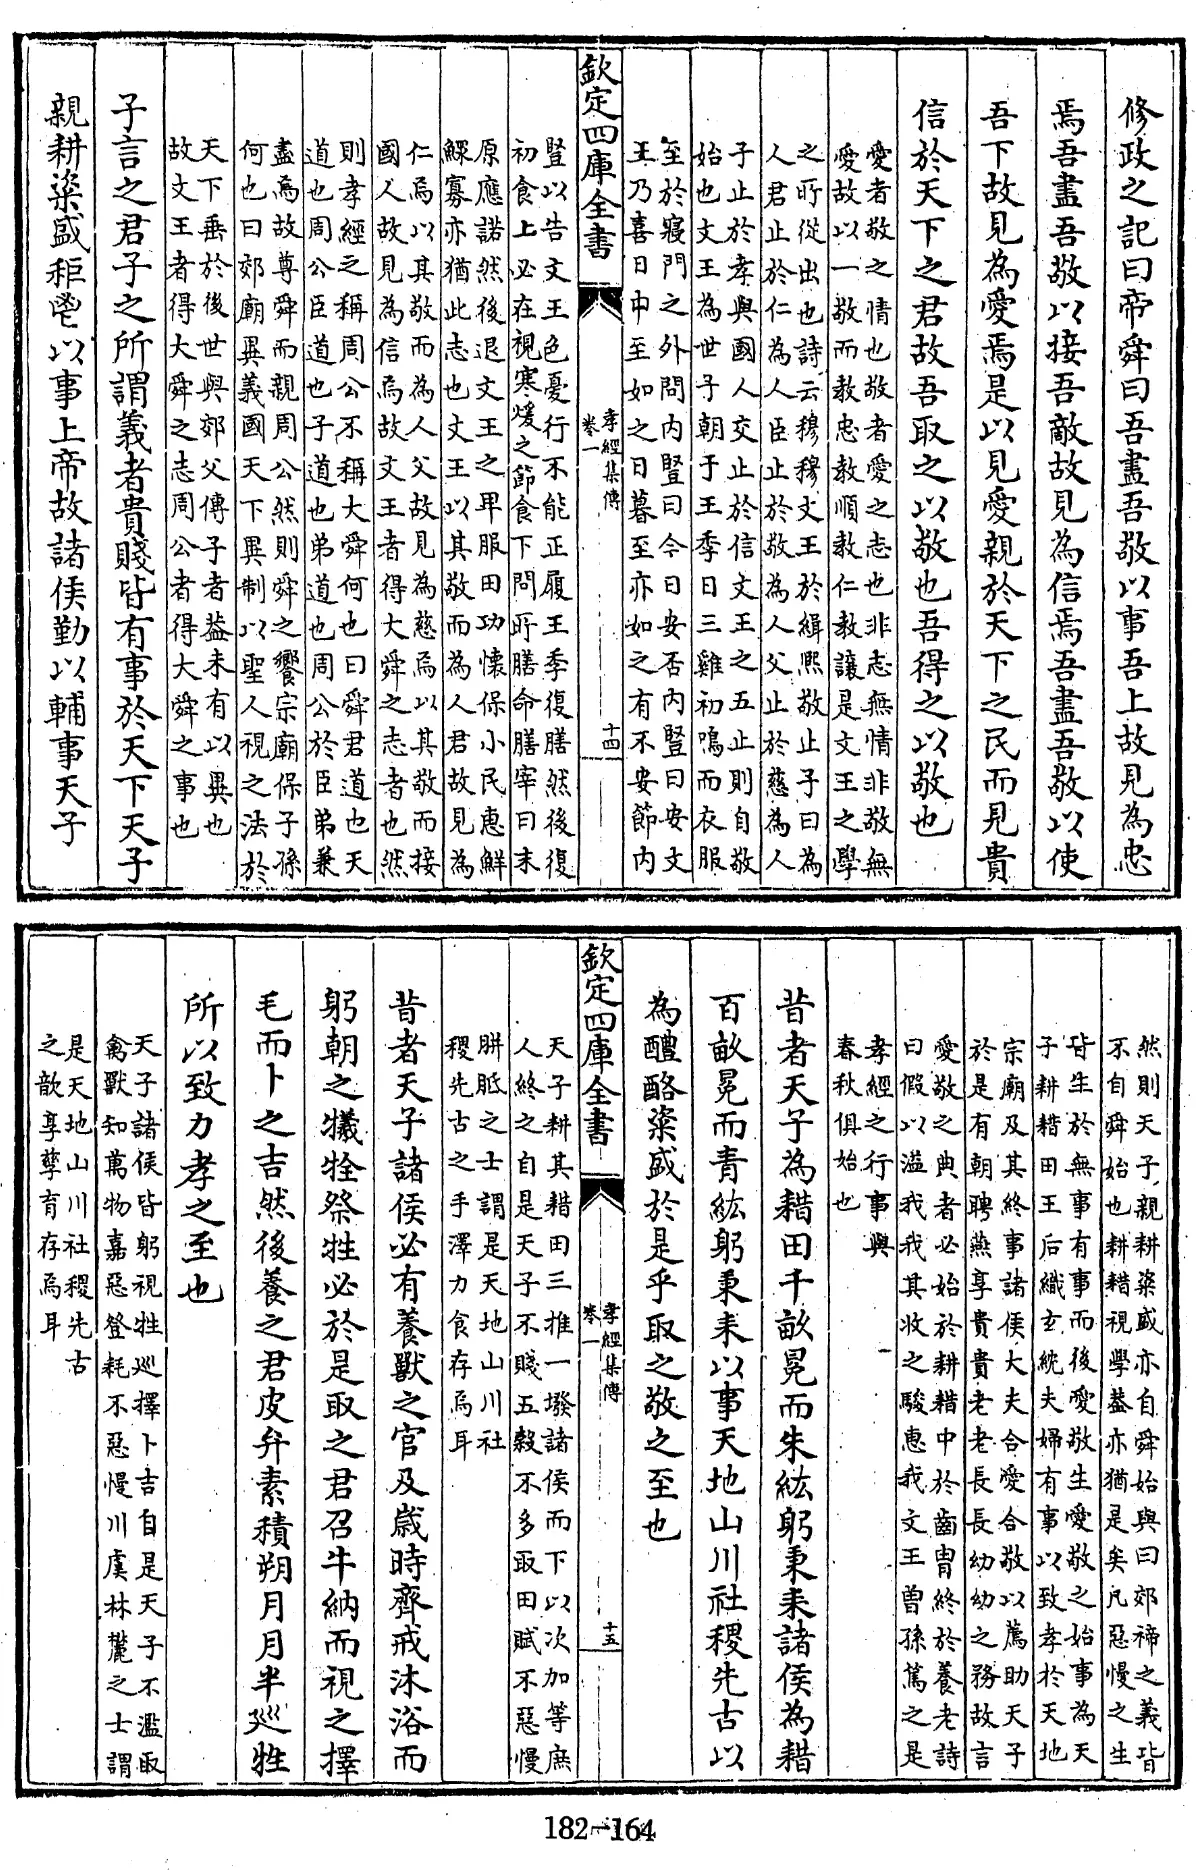 修政之記曰帝舜曰吾盡吾敬以事吾上故見為忠
焉吾盡吾敬以接吾敵故見為信焉吾盡吾敬以使
吾下故見為愛焉是以見愛親於天下之民而見貴
信於天下之君故吾取之以敬也吾得之以敬也
愛者敬之情也敬者愛之志也非志無情非敬無
愛故以一敬而教忠教順教仁教讓是文王之學
之所從出也詩云穆穆文王於緝熙敬止子曰為
人君止於仁為人臣止於敬為人父止於慈為人
子止於孝與國人交止於信文王之五止則自敬
始也文王為世子朝于王季日三雞初鳴而衣服
至於寢門之外問內豎曰今日安否內豎曰安文
王乃喜日中至如之日暮至亦如之有不安節內
欽定四庫全書
孝經集傳
卷一
十四
豎以告文王色憂行不能正履王季復膳然後復
初食上必在視寒煖之節食下問所膳命膳宰曰末
原應諾然後退文王之卑服田功懷保小民惠鮮
鰥寡亦猶此志也文王以其敬而為人君故見為
仁焉以其敬而為人父故見為慈焉以其敬而接
國人故見為信焉故文王者得大舜之志者也然
則孝經之稱周公不稱大舜何也曰舜君道也天
道也周公臣道也子道也弟道也周公於臣弟兼
盡焉故尊舜而親周公然則舜之饗宗廟保子孫
何也曰郊廟異義國天下異制以聖人視之法於
天下垂於後世與郊父傳子者益未有以異也
故文王者得大舜之志周公者得大舜之事也
子言之君子之所謂義者貴賤皆有事於天下天子
親耕粢盛秬鬯以事上帝故諸侯勤以輔事天子
然則天子親耕粢盛亦自舜始與曰郊禘之義皆
不自舜始也耕耤視學蓋亦猶是矣凡惡慢之生
皆生於無事有事而後愛敬生愛敬之始事為天
子耕耤田王后織玄紞夫婦有事以致孝於天地
宗廟及其終事諸侯大夫合愛合敬以薦助天子
於是有朝聘燕享貴貴老老長長幼幼之務故言
愛敬之典者必始於耕耤中於齒胄終於養老詩
曰假以溢我我其收之駿惠我文王曾孫篤之是
孝經之行事與
春秋俱始也
昔者天子為耤田千畝冕而朱紘躬秉耒諸侯為耤
百畝冕而青紘躬秉耒以事天地山川社稷先古以
為醴酪粢盛於是乎取之敬之至也
欽定四庫全書
孝經集傳
卷一
十五
天子耕其耤田三推一墢諸侯而下以次加等庶
人終之自是天子不賤五穀不多取田賦不惡慢
胼胝之士謂是天地山川社
稷先古之手澤力食存焉耳
昔者天子諸侯必有養獸之官及歲時齊戒沐浴而
躬朝之犧牷祭牲必於是取之君召牛納而視之擇
毛而卜之吉然後養之君皮弁素積朔月月半巡牲
所以致力孝之至也
天子諸侯皆躬視牲巡擇卜吉自是天子不濫取
禽獸知萬物嘉惡登耗不惡慢川虞林麓之士謂
是天地山川社稷先古
之歆享孳育存焉耳
182-164